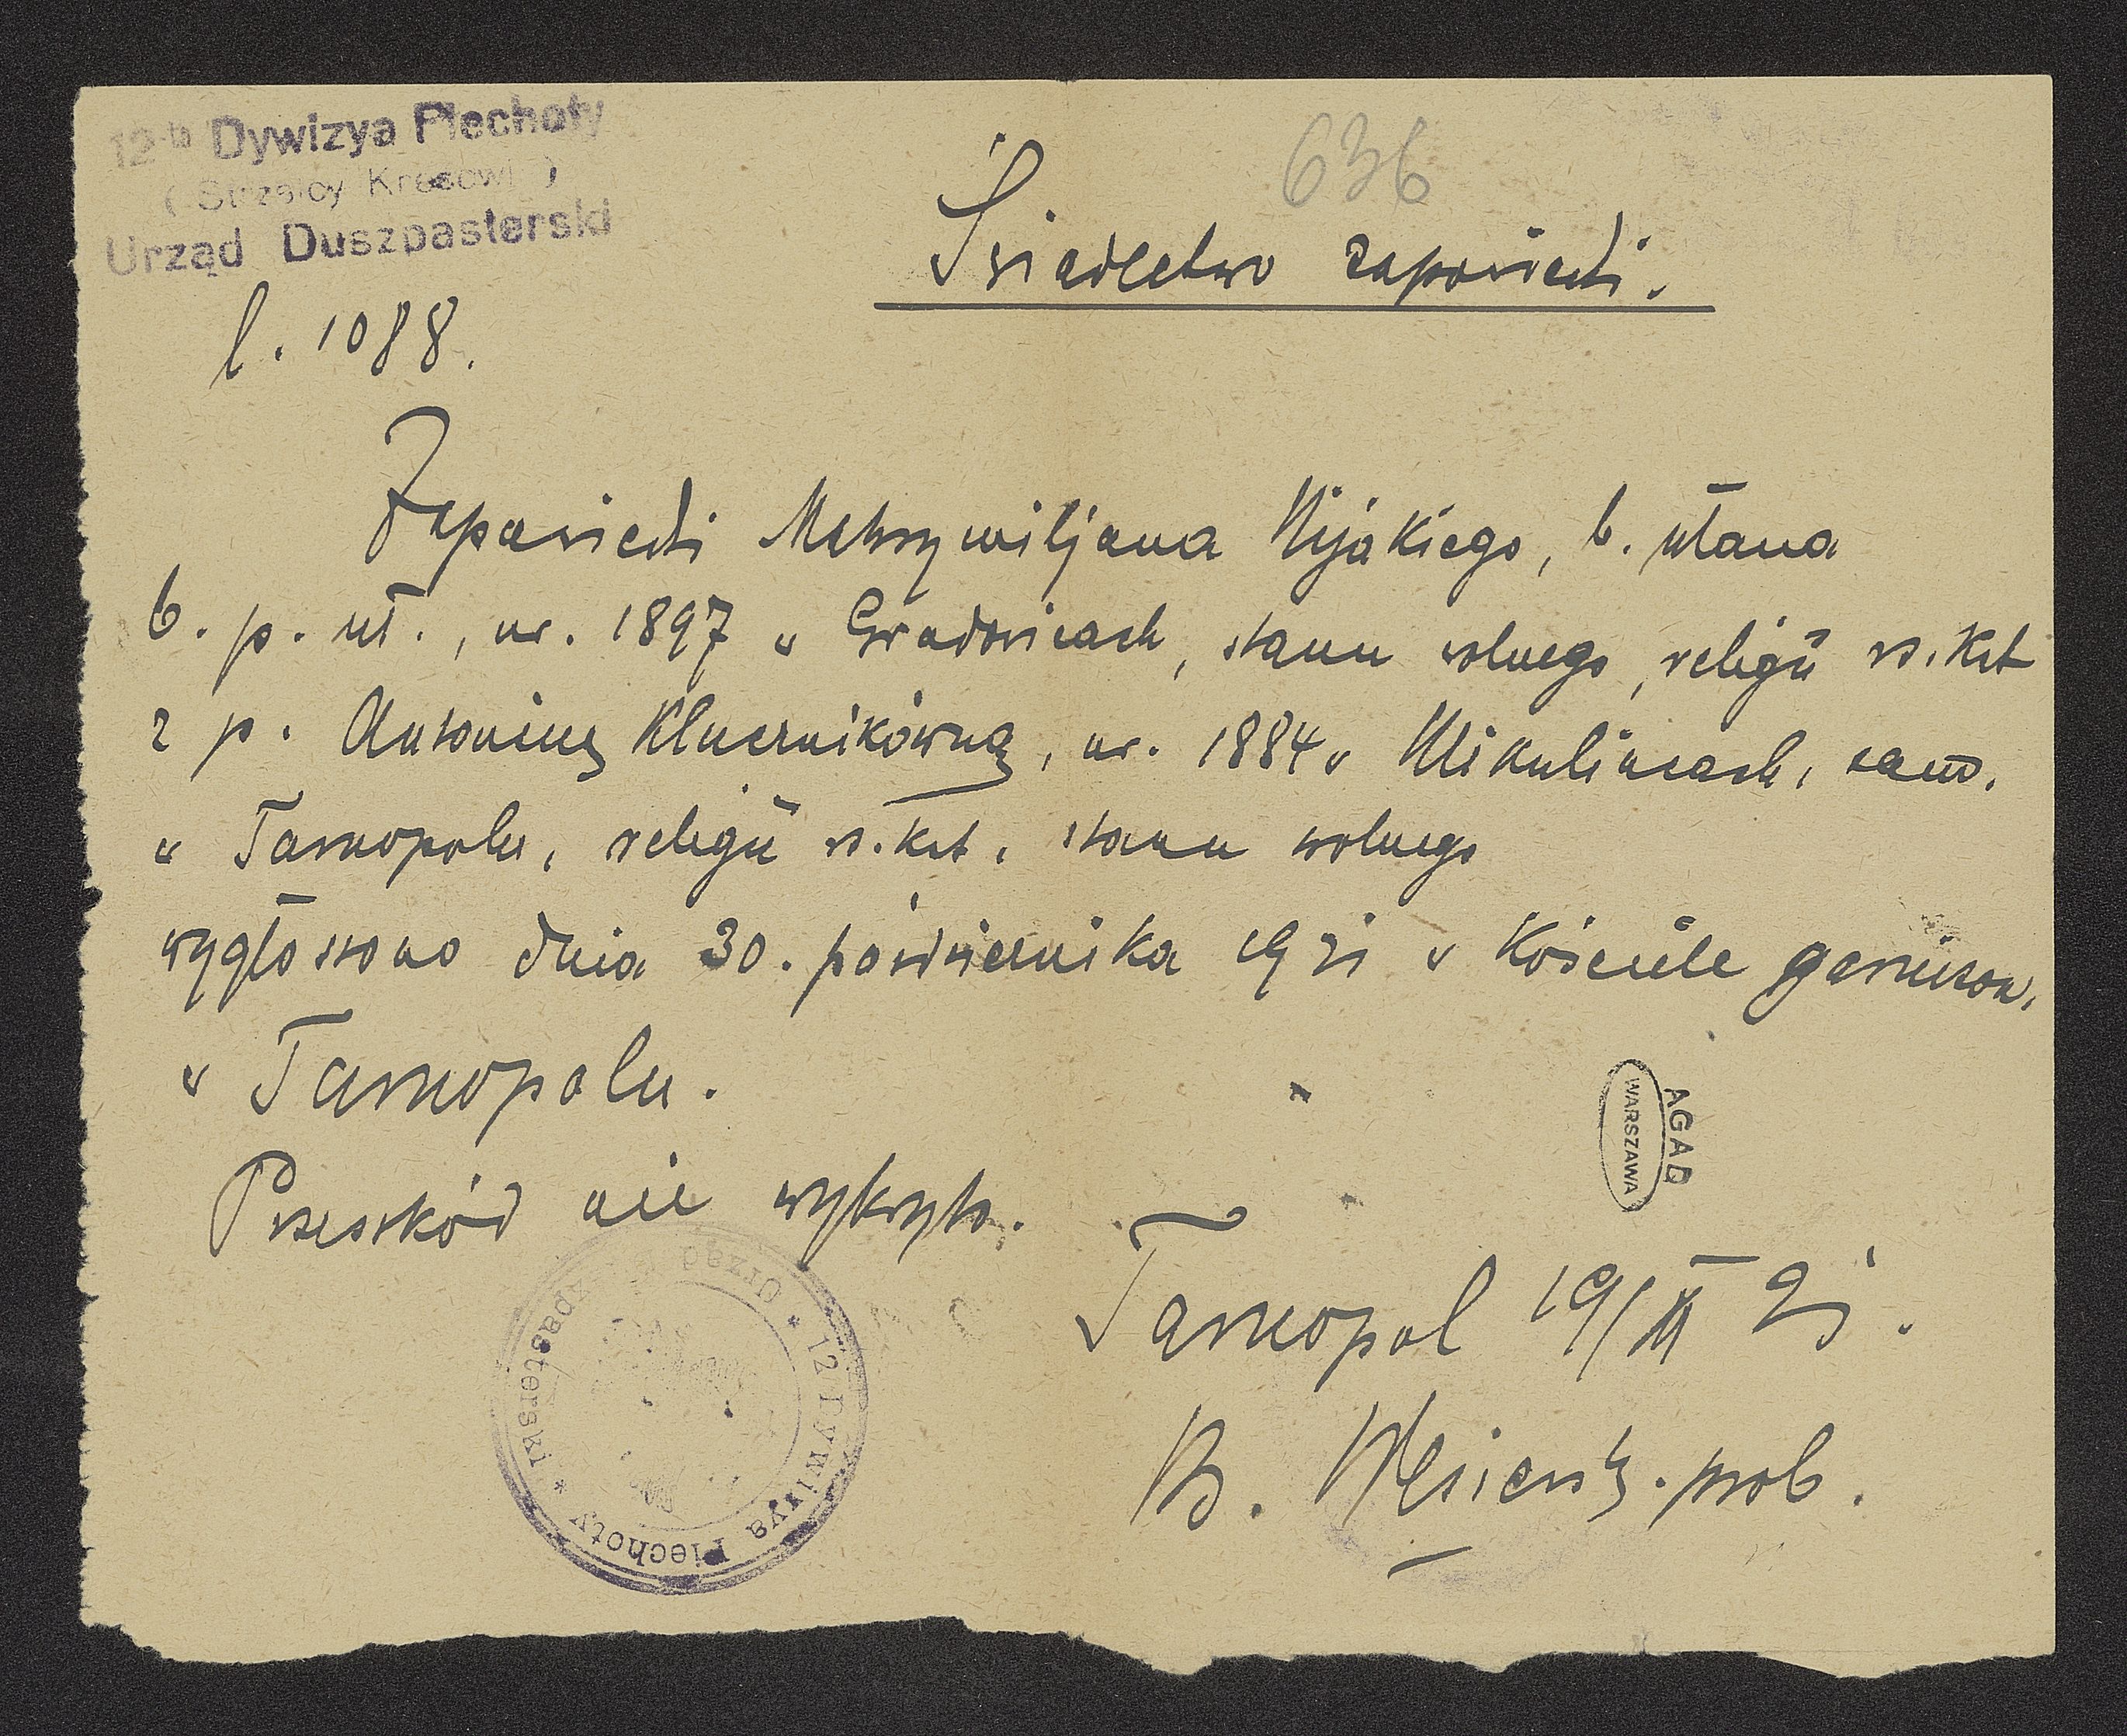 12-ta Dywizya Piechoty
(Strzelcy Kresowi)
Urząd Duszpasterski
636
Świadectwo zapowiedzi.
l. 1088.
Zapowiedzi Maksymiljana Nijakiego, b. ułana
6. p. uł., ur. 1897 w Gradowicach, stanu wolnego, religii rz. kat
z p. Antoniną Klucznikówną, ur. 1884 w Mikulińcach, zam.
w Tarnopolu, religii rz. kat, stanu wolnego
wygłoszono dnia 30. października 1921 w kościele garnizon.
w Tarnopolu.
Przeszkód nie wykryto.
AGAD
WARSZAWA
Tarnopol 19/XI 21.
prob.
* 12 Dywizya Piechoty * Urząd Duszpasterski